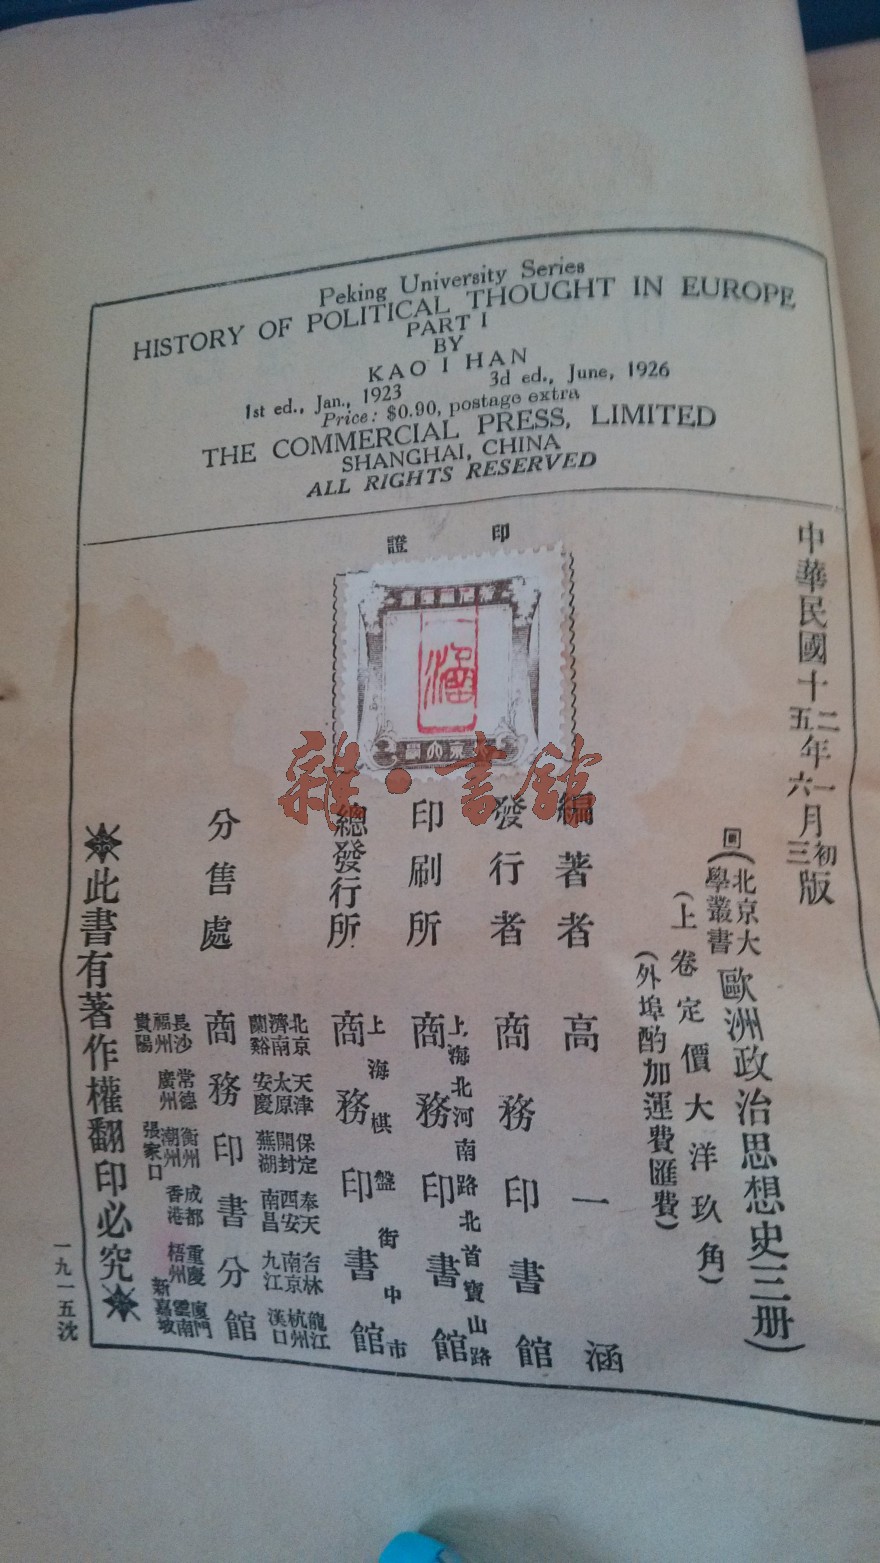 Peking University Series
HISTORY OF POLITICAL THOUGHT IN EUROPE
PART I
BY
KAO I HAN
1st ed., Jan., 1923 3d ed., June, 1926
Price: $0.90, postage extra
THE COMMERCIAL PRESS, LIMITED
SHANGHAI, CHINA
ALL RIGHTS RESERVED
印證
涵
雜·書館
中華民國十二年一月初版
五 六 三
回(北京大學叢書)歐洲政治思想史三册)
(上卷定價大洋玖角)
(外埠酌加運費匯費)
編著者 高一涵
發行者 商務印書館
印刷所 上海北河南路北首寶山路 商務印書館
總發行所 上海棋盤街中市 商務印書館
分售處 商務印書分館
北京 天津 保定 奉天 吉林 龍江
濟南 太原 開封 西安 南京 杭州
蘭谿 安慶 蕪湖 南昌 九江 漢口
長沙 常德 衡州 成都 重慶 廈門
福州 廣州 潮州 香港 梧州 雲南
貴陽 張家口 新嘉坡
此書有著作權翻印必究
一九一五沈